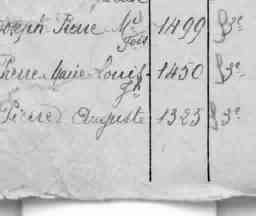 Joseph Pierre Md 1499 3e
Fois
Pierre Marie Louis 1450 3e
Jh
Pierre Auguste 1323 3e